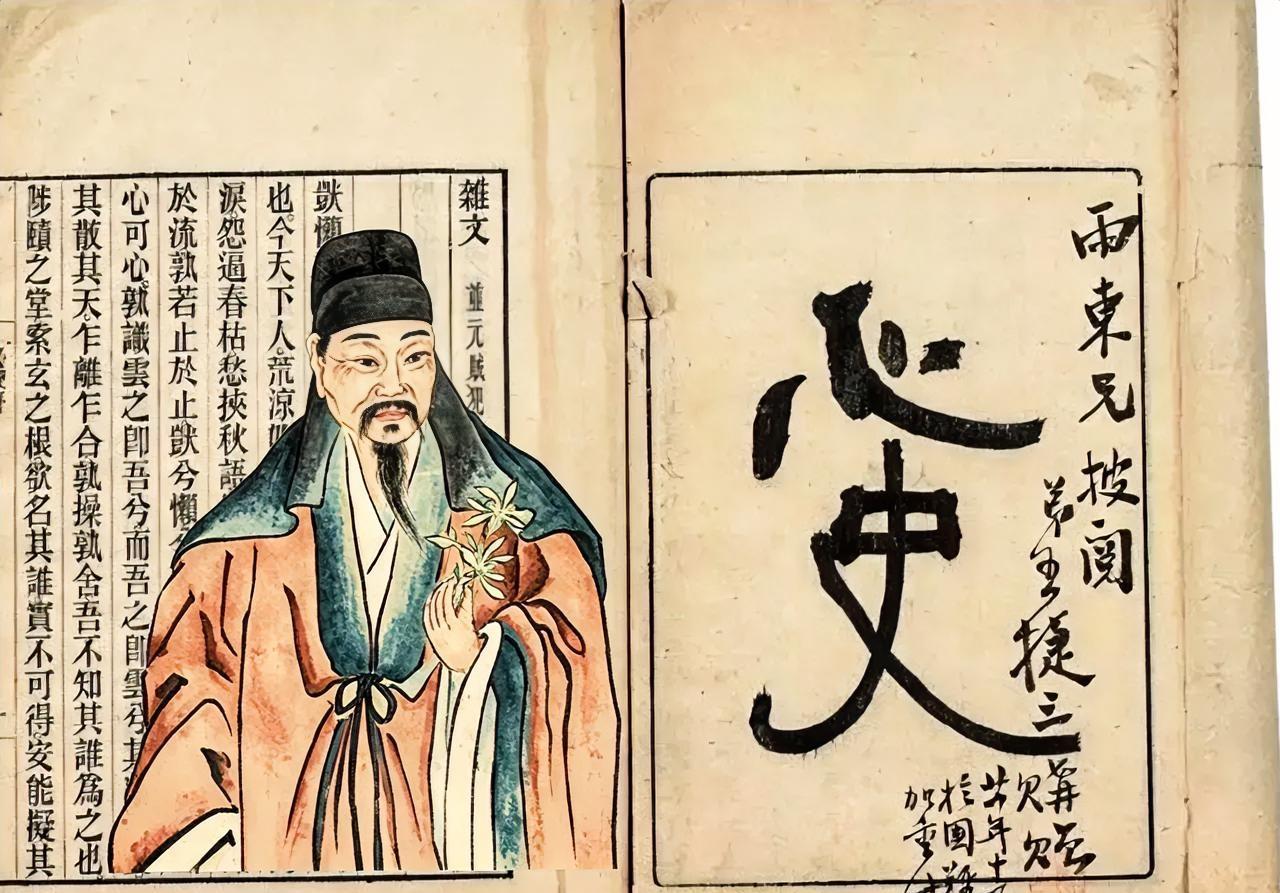 心史
雨東兄披閱
弟王捷三
購贈
雜文
並元賊犯
獃懶
也今天下人荒涼
淚怨逼春枯愁挾秋語
於流孰若止於止獃兮懶
心可心孰讖雲之卽吾兮而吾之卽雲兮其
其散其天乍離乍合孰操孰舍吾不知其誰爲之也
陟賾之堂索玄之根欲名其誰實不可得安能擬其